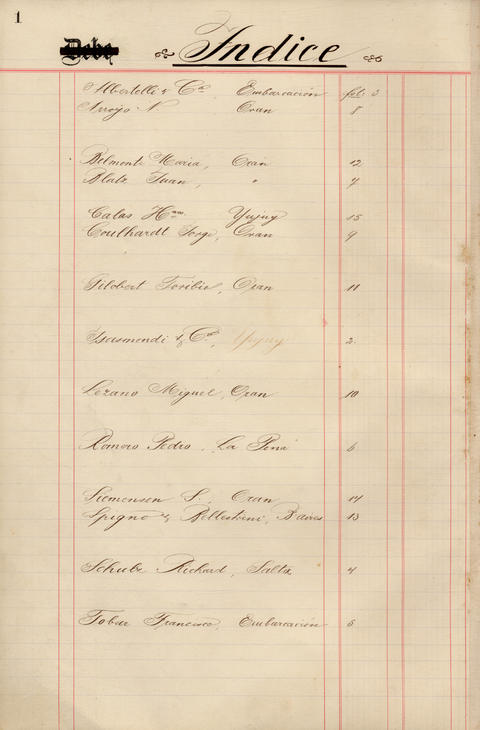 1
Debe
Indice
Albertelli & Cª Embarcación fol. 3
Arroyo N. Oran 8
Belmonte Maria, Oran 12
Blatz Juan, " 7
Calas Hnos. Yujuy 15
Coulhardt Jorge, Oran 9
Gilobert Toribio, Oran 11
Isasmendi & Cª Yujuy 2
Lezano Miguel, Oran 10
Romero Pedro, La Pena 6
Siemensen S. Oran 14
Spigno & Bellestrini, B'aires 13
Schulz Richard, Salta 4
Tobar Francisco, Embarcación 5